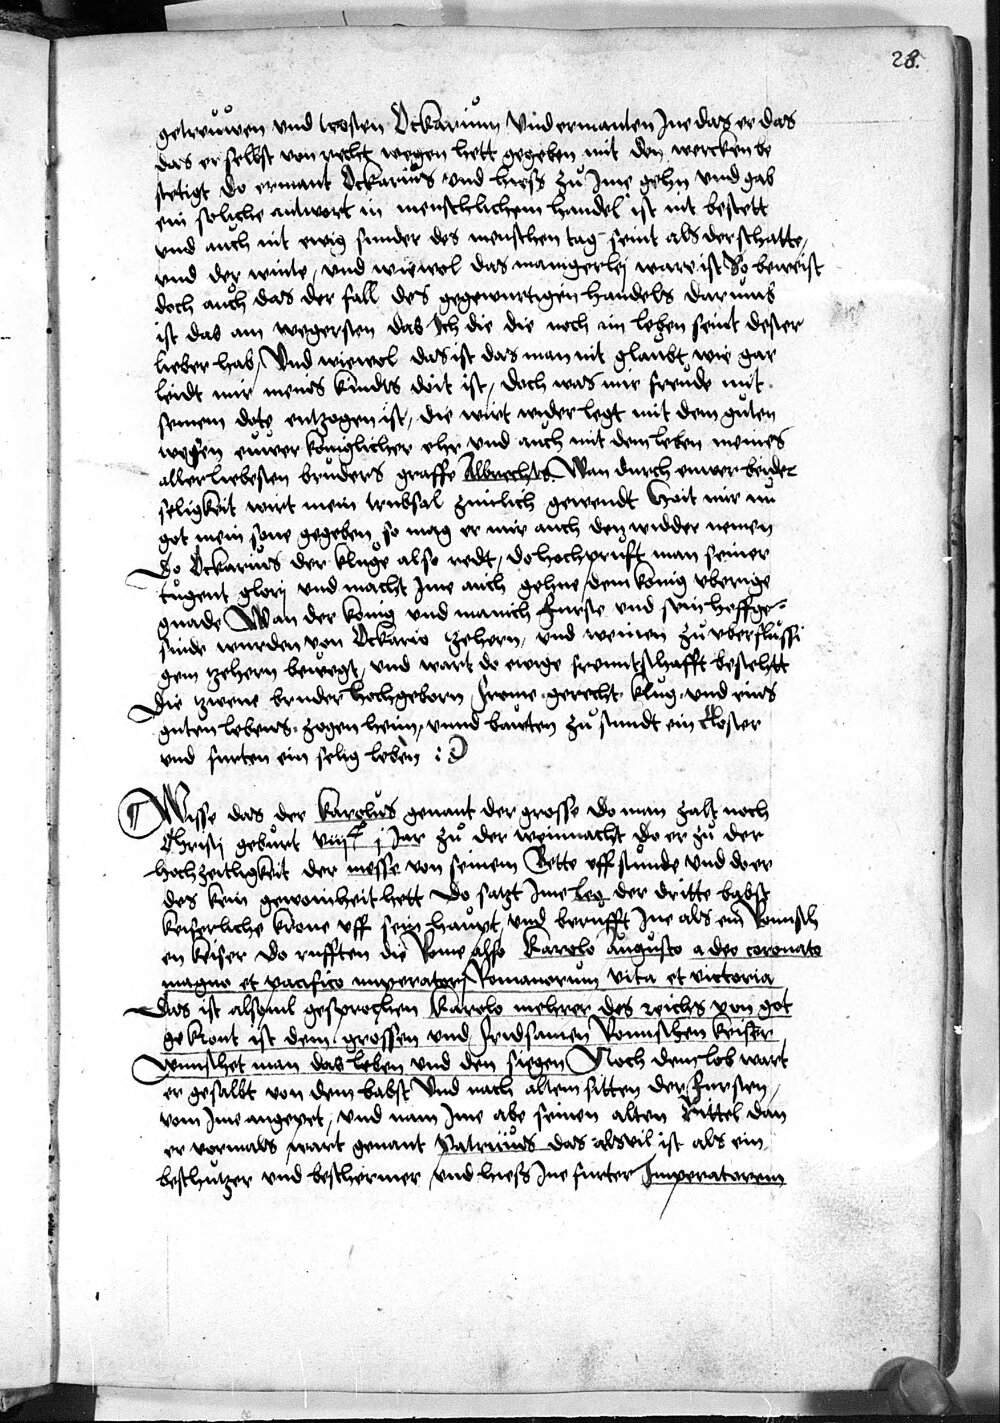 28.
getreuwen und trosten Ockarium Und ermanten Jne das er das
das er selbst von recht wegen hett gegeben mit den wercken be
stetigt Do ermant Ockarius und hiess zu Jme gehn und gab
ein soliche antwort in menschlichem handel ist nit bestett
und auch nit ewig sunder des menschen tag seint als der schatte,
und der winte, und wiewol das manigerley ware ist So beweist
doch auch das der fall des gegenwurtigen handels darumb
ist das am wegersten das Ich die die noch im leben seint dester
lieber hab, Und wiewol das ist das man nit glaubt wie gar
leidt mir meins kindts doit ist, doch was mir freude mit
seinem dote entzogen ist, die wirt widerlegt mit dem guten
wesen euwer koniglicher ehr und auch mit dem leben meines
allerliebesten bruders graffe Albrechts. Wan durch euwer beider
seligkeit wirt mein trubsal zimlich gewendt Hait mir nu
got mein sone gegeben so mag er mir auch den widder nemen
Do Ockarius der kluge also redt, do hochpruft man seiner
tugent glorj und macht Jme auch gehne dem konig uberige
gnade Wan der konig und manich Furste und sein hoffge-
sinde wurden von Ockario zehern, und weinen zu uberflussi
gem zehern bewegt, und wart do ewige freuntschafft bestehtt
Die zwene bruder hochgeborn frome gerecht klug und eins
guten lebens zogen heim, unnd bauten zu stundt ein Closter
und furten ein selig leben :
¶ Wisse das der Karolus genant der grosse do man zalt noch
Christj geburt viiic j Jar zu der weinnacht do er zu der
hochzeitligkeit der messe von seinem Bette uff stunde und do er
des kein gewoinheit hett Do satzt Jme Leo der dritte babst
keiserliche krone uff sein haupt, und berufft Jne als ein Romisch
en keiser Do rufften die Rome also Karolo augusto a deo coronato
magno et pacifico imperatorj Romanorum vita et victoria
Das ist alsouil gesprochen Karolo mehrer des reichs von got
gekront ist dem grossen und fridsamen Romischen keiser
wunschet man das leben und den siegen Noch dem lob wart
er gesalbt von dem babst Und nach altem sitten der fursten,
von Jme angepet, und nam Jme abe seinen alten Tittel dan
er vormals wart genant Patricius das alsvil ist als ein
beschutzer und beschirmer und hiess Jne furter Imperatorem